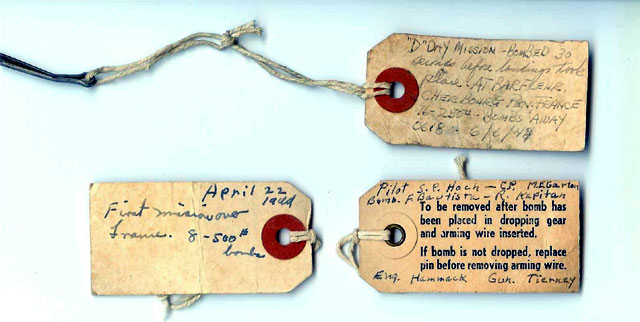 "D" DAY MISSION - BOMBED 30
seconds before landings took
place. AT BARFLEUR,
CHERBOURG PEN. FRANCE
BOMBS AWAY
0618 6/6/44
April 22
1944
First mission over
France. 8-500#
bombs
Pilot S.P. Hoch - C.P. M.E. Garton
Bomb. F. Bautista - R. Kapitan
To be removed after bomb has
been placed in dropping gear
and arming wire inserted.
If bomb is not dropped, replace
pin before removing arming wire.
Eng. Hammack Gun. Tierney